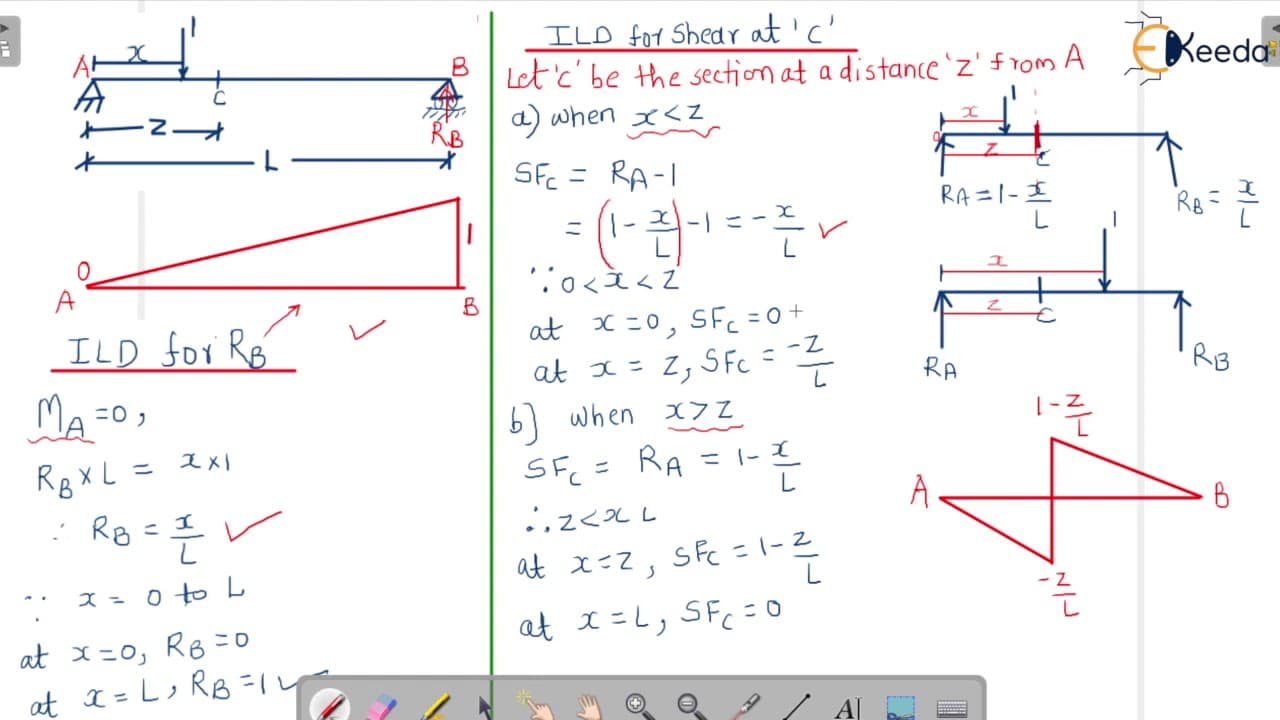 x
1
A
B
C
Z
R_B
L
0
1
A
B
ILD for R_B
M_A = 0,
R_B × L = x × 1
∴ R_B = x/L
∵ x = 0 to L
at x=0, R_B=0
at x = L, R_B = 1
ILD for Shear at 'C'
Let 'c' be the section at a distance 'z' from A
a) when x < z
SF_C = R_A - 1
= (1 - x/L) - 1 = - x/L
∵ 0 < x < z
at x = 0, SF_C = 0
at x = z, SF_C = -z/L
b] when x > z
SF_C = R_A = 1 - x/L
∴ z < x L
at x = z, SF_C = 1 - z/L
at x = L, SF_C = 0
EKeeda
x
1
z
C
R_A = 1 - x/L
R_B = x/L
1
x
z
C
R_A
R_B
1 - z/L
A
B
-z/L
A